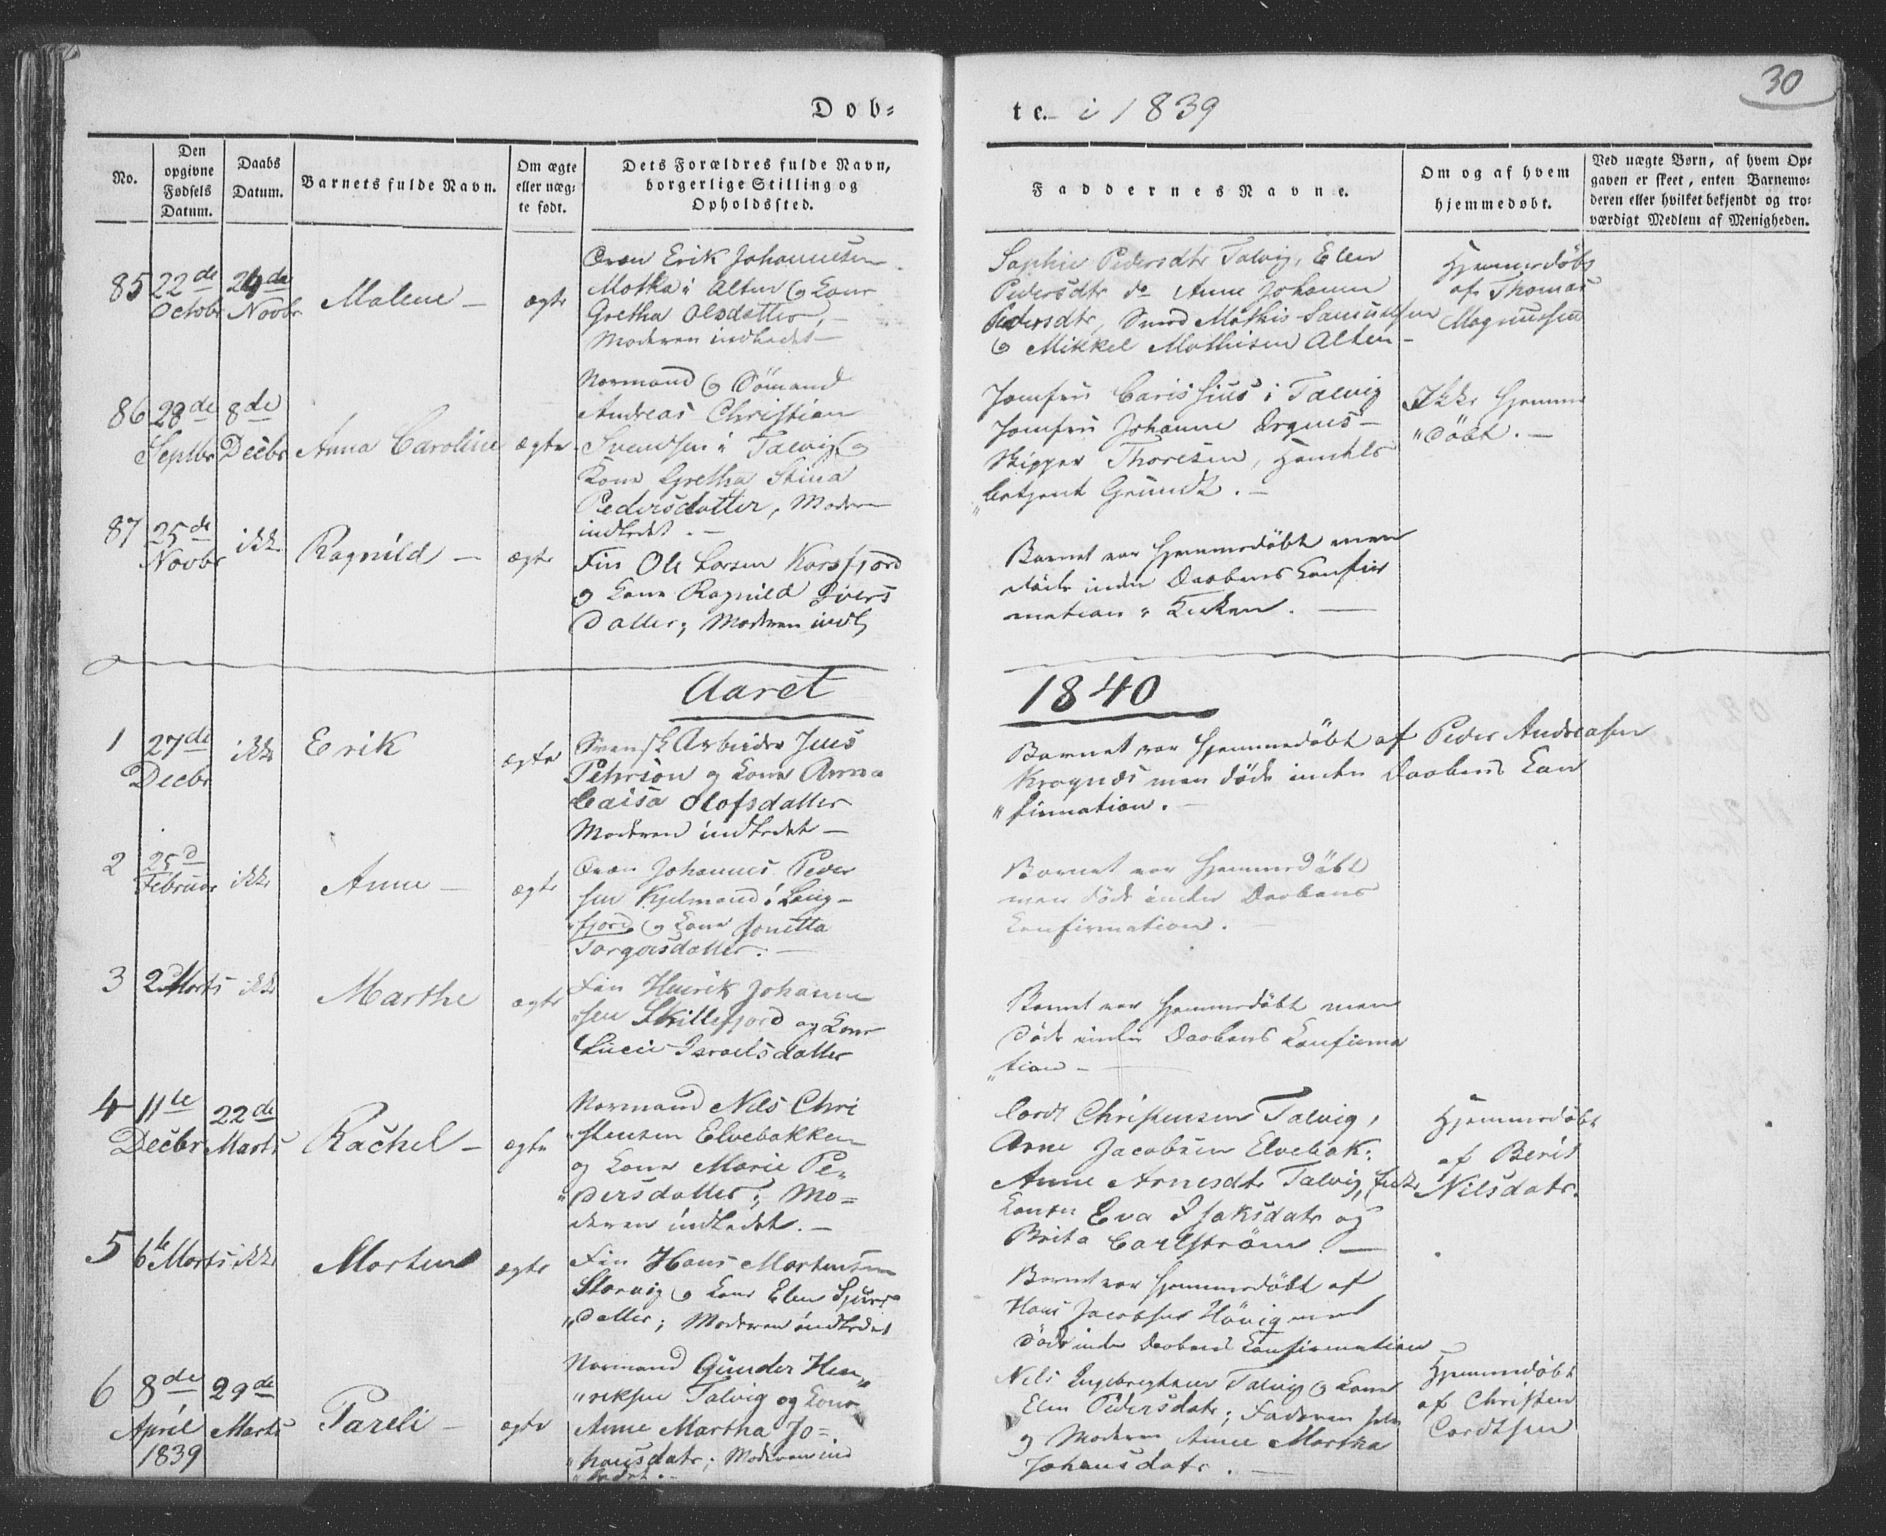 30
Døb=
te. i 1839
No.
Den
opgivne
Fødsels
Datum.
Daabs
Datum.
Barnets fulde Navn.
Om ægte
eller uæg-
te født.
Dets Forældres fulde Navn,
borgerlige Stilling og
Opholdssted.
Faddernes Navne.
Om og af hvem
hjemmedøbt.
Ved uægte Børn, af hvem Op-
gaven er skeet, enten Barnemo-
deren eller hvilket bekjendt og tro-
værdigt Medlem af Menigheden.
85
22de
Octobr
24de
Novbr
Malene
ægte
Qvæn Erik Johannesen
Motka i Alten og Kone
Gretha Olsdatter,
Moderen indledet
Sophie Pedersdtr Talvig, Elen
Pedersdtr do Anne Johanne
Pedersdtr, Svend Mathis Samuelsen
og Mikkel Mathisen Alten
Hjemmedøbt
af Thomas
Magnussen
86
28de
Septbr
8de
Decbr
Anna Caroline
ægte
Normand og Sømand
Andreas Christian
Svendsen i Talvig og
Kone Gretha Stina
Pedersdatter, Moderen
indledet.
Jomfru i Talvig
Jomfru Johanne
Skipper Thoresen, Handels
betjent Grundt.
Ikke Hjemme
døbt.
87
25de
Novbr
ikke
Ragnild
ægte
Fin Ole Larsen Korsfjord
og Kone Ragnild Ivers
datter; Moderen indl
Barnet var Hjemmedøbt men
døde inden Daabens Confir
mation i Kirken.
Aaret
1840
1
27de
Decbr
ikke
Erik
ægte
Svensk Arbeider Jens
Pehrson og Kone Anna
Caisa Olofsdatter
Moderen indledet
Barnet var Hjemmedøbt af Peder Andreasen
Kragnæs men døde inden Daabens Con
firmation.
2
25d
Februar
ikke
Anne
ægte
Qvæn Johannes Peder
sen Kjelmand i Lang-
fjord og Kone Jonetta
Torgersdatter.
Barnet var Hjemmedøbt
men døde inden Daabens
Confirmation.
3
2 Marts
ikke
Marthe
ægte
Fin Henrik Johanne
sen Skillefjord og Kone
Lucie Israelsdatter
Barnet var Hjemmedøbt men
døde inden Daabens Confirma
tion
4
11te
Decbr
22de
Marts
Rachel
ægte
Normand Nils Chri
stensen Elvebakken
og Kone Marie Pe-
dersdatter; Mo=
deren indledet.
Cordt Christensen Talvig,
Arne Jacobsen Elvebak:
Anne Arnesdtr Talvig,
Konen Eva Isaksdatr og
Brita Carlstrøm.
Hjemmedøbt
af Berit
Nilsdatr.
5
6te Marts
ikke
Morten
ægte
Fin Hans Mortensen
Storvig og Kone Elen Sjurs
datter; Moderen indledet
Barnet var Hjemmedøbt af
Hans Jacobsen Høvig men
døde inden Daabens Confirmation
6
8de
April
1839
29de
Marts
Pareli
ægte
Normand Gunder Hen
riksen Talvig og Kone
Anne Martha Jo=
hansdatr; Moderen ind
ledet.
Nils Engebregtsen Talvig og Kone
Elen Pedersdatr; Faderen selv
og Moderen Anne Martha
Johansdatr.
Hjemmedøbt
af Christen
Cordtsen